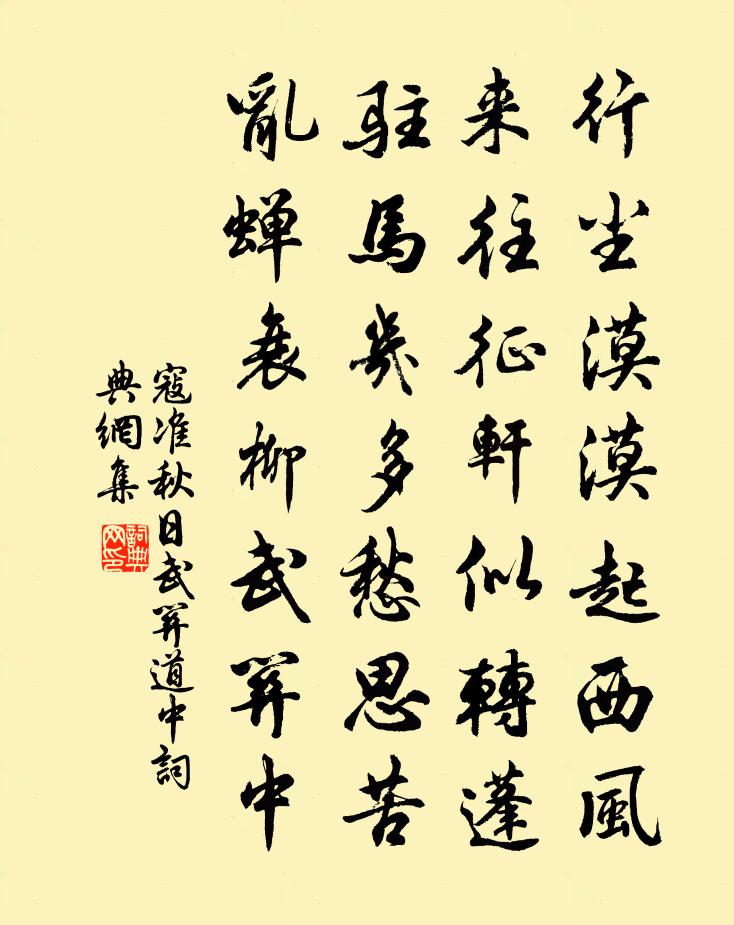 行尘漠漠起西風
来往征軒似轉蓬
駐馬幾多愁思苦
亂蟬衰柳武關中
寇准秋日武關道中詞
典網集
詞典
网印